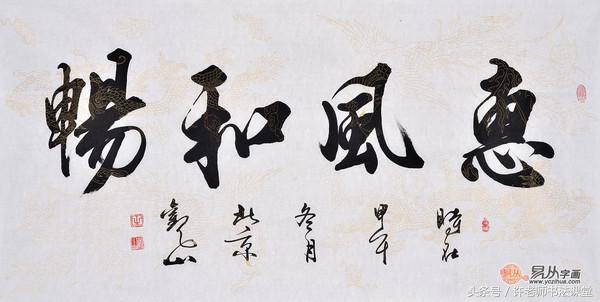 惠風和暢
時在甲午冬月北京
易从字画
www.yczihua.com
头条号 / 许老师书法课堂